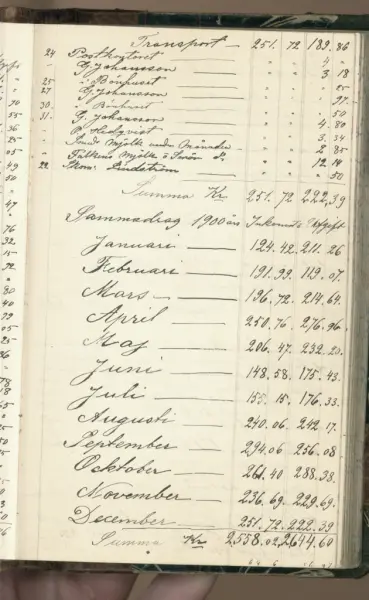 Transport — 251. 72 189. 86
24 Postkontoret — " " 4 "
" G. Johansson — " " 3 18
25 i Bönhuset — " " " 25
27 G. Johansson — " " " 97
30. i Bönhuset — " " " 50
31. G. Johansson — " " 4. 80
" P. Hedqvist — " " 3. 34
" Smids Mjölk under Månaden — " " 2 85
" Falkens Mjölk o Smör d:o " " 12 14
22 Skom. Lindström — " " " 50
Summa Kr 251. 72 222,39
Sammandrag 1900 års Inkomst o Utgift
Januari — 124. 42. 211. 26
Februari — 191. 99. 119. 07.
Mars — 196. 72. 214. 69.
April — 250. 76. 276. 96.
Maj — 206. 47. 232. 23.
Juni — 148. 58. 175. 43.
Juli — 155. 15. 176. 33.
Augusti — 240. 06. 242. 17.
September — 294. 06. 256. 08
Ocktober — 261. 40 288. 38.
November — 236. 69. 229. 69.
December — 251. 72. 222. 39
Summa Kr 2,558. 02, 2,644. 60